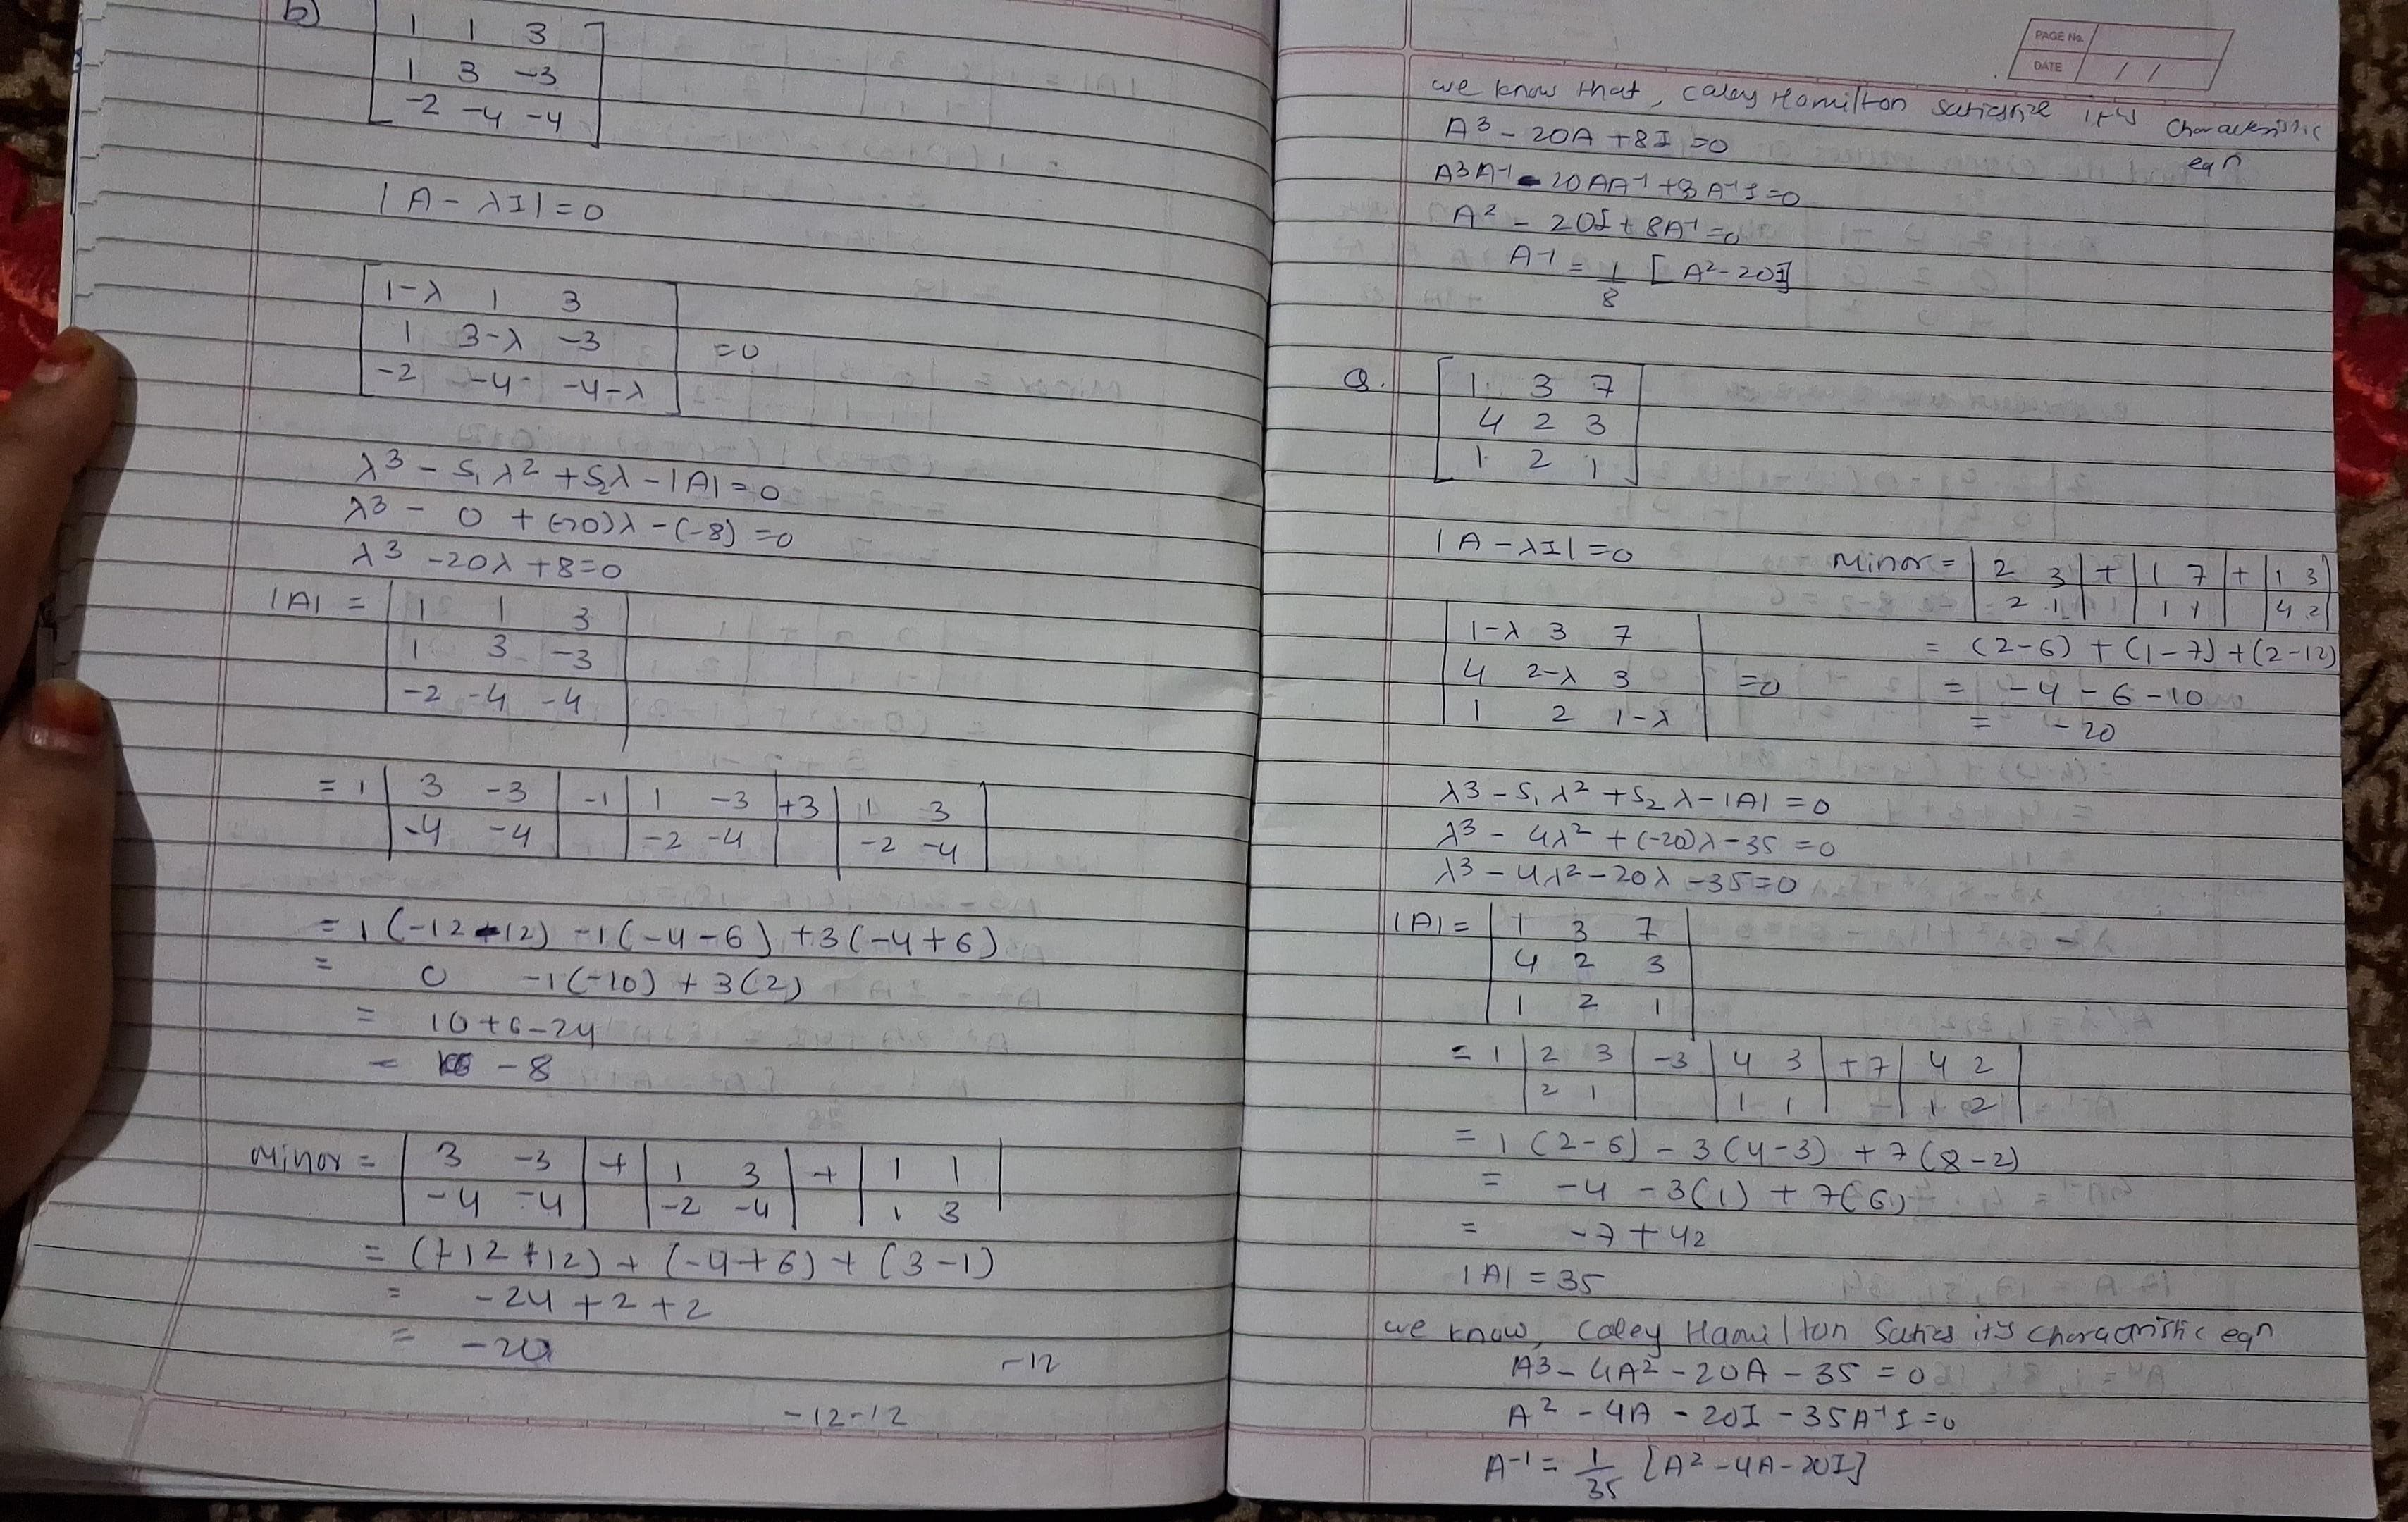 b) [ 1 1 3
1 3 -3
-2 -4 -4 ]
|A - λI| = 0
[ 1-λ 1 3
1 3-λ -3 =0
-2 -4 -4-λ ]
λ3 - S1 λ2 + S2λ - |A| = 0
λ3 - 0 + (-20)λ - (-8) = 0
λ3 - 20λ + 8 = 0
|A| = | 1 1 3 |
1 3 -3
-2 -4 -4
= 1 | 3 -3 | -1 | 1 -3 | +3 | 1 3 |
-4 -4 | -2 -4 | -2 -4
= 1 (-12-12) -1(-4-6) +3(-4+6)
= 0 -1(-10) + 3(2)
= 10+6-24
= -8
Minor = | 3 -3 | + | 1 3 | + | 1 1 |
-4 -4 | -2 -4 | 1 3
= (-12-12) + (-4+6) + (3-1)
= -24 + 2 + 2
= -20
-12
-12-12
PAGE No.
DATE / /
we know that, Caley Hamilton its characteristic
eqn
A3 - 20A + 8I = 0
A3A-1 - 20AA-1 + 8A-1I = 0
A2 - 20I + 8A-1 = 0
A-1 = 1/8 [A2 - 20I]
Q. [ 1 3 7
4 2 3
1 2 1 ]
|A - λI| = 0
Minor = | 2 3 | + | 1 7 | + | 1 3 |
2 1 | 1 1 | 4 2
= (2-6) + (1-7) + (2-12)
= -4 - 6 - 10
= -20
| 1-λ 3 7 |
4 2-λ 3 =0
1 2 1-λ
λ3 - S1 λ2 + S2 λ - |A| = 0
λ3 - 4λ2 + (-20)λ - 35 = 0
λ3 - 4λ2 - 20λ - 35 = 0
|A| = | 1 3 7 |
4 2 3
1 2 1
= 1 | 2 3 | -3 | 4 3 | +7 | 4 2 |
2 1 | 1 1 | 1 2
= 1 (2-6) - 3(4-3) + 7(8-2)
= -4 - 3(1) + 7(6)
= -7 + 42
|A| = 35
we know, Caley Hamilton its characteristic eqn
A3 - 4A2 - 20A - 35 = 0
A2 - 4A - 20I - 35A-1I = 0
A-1 = 1/35 [A2 - 4A - 20I]